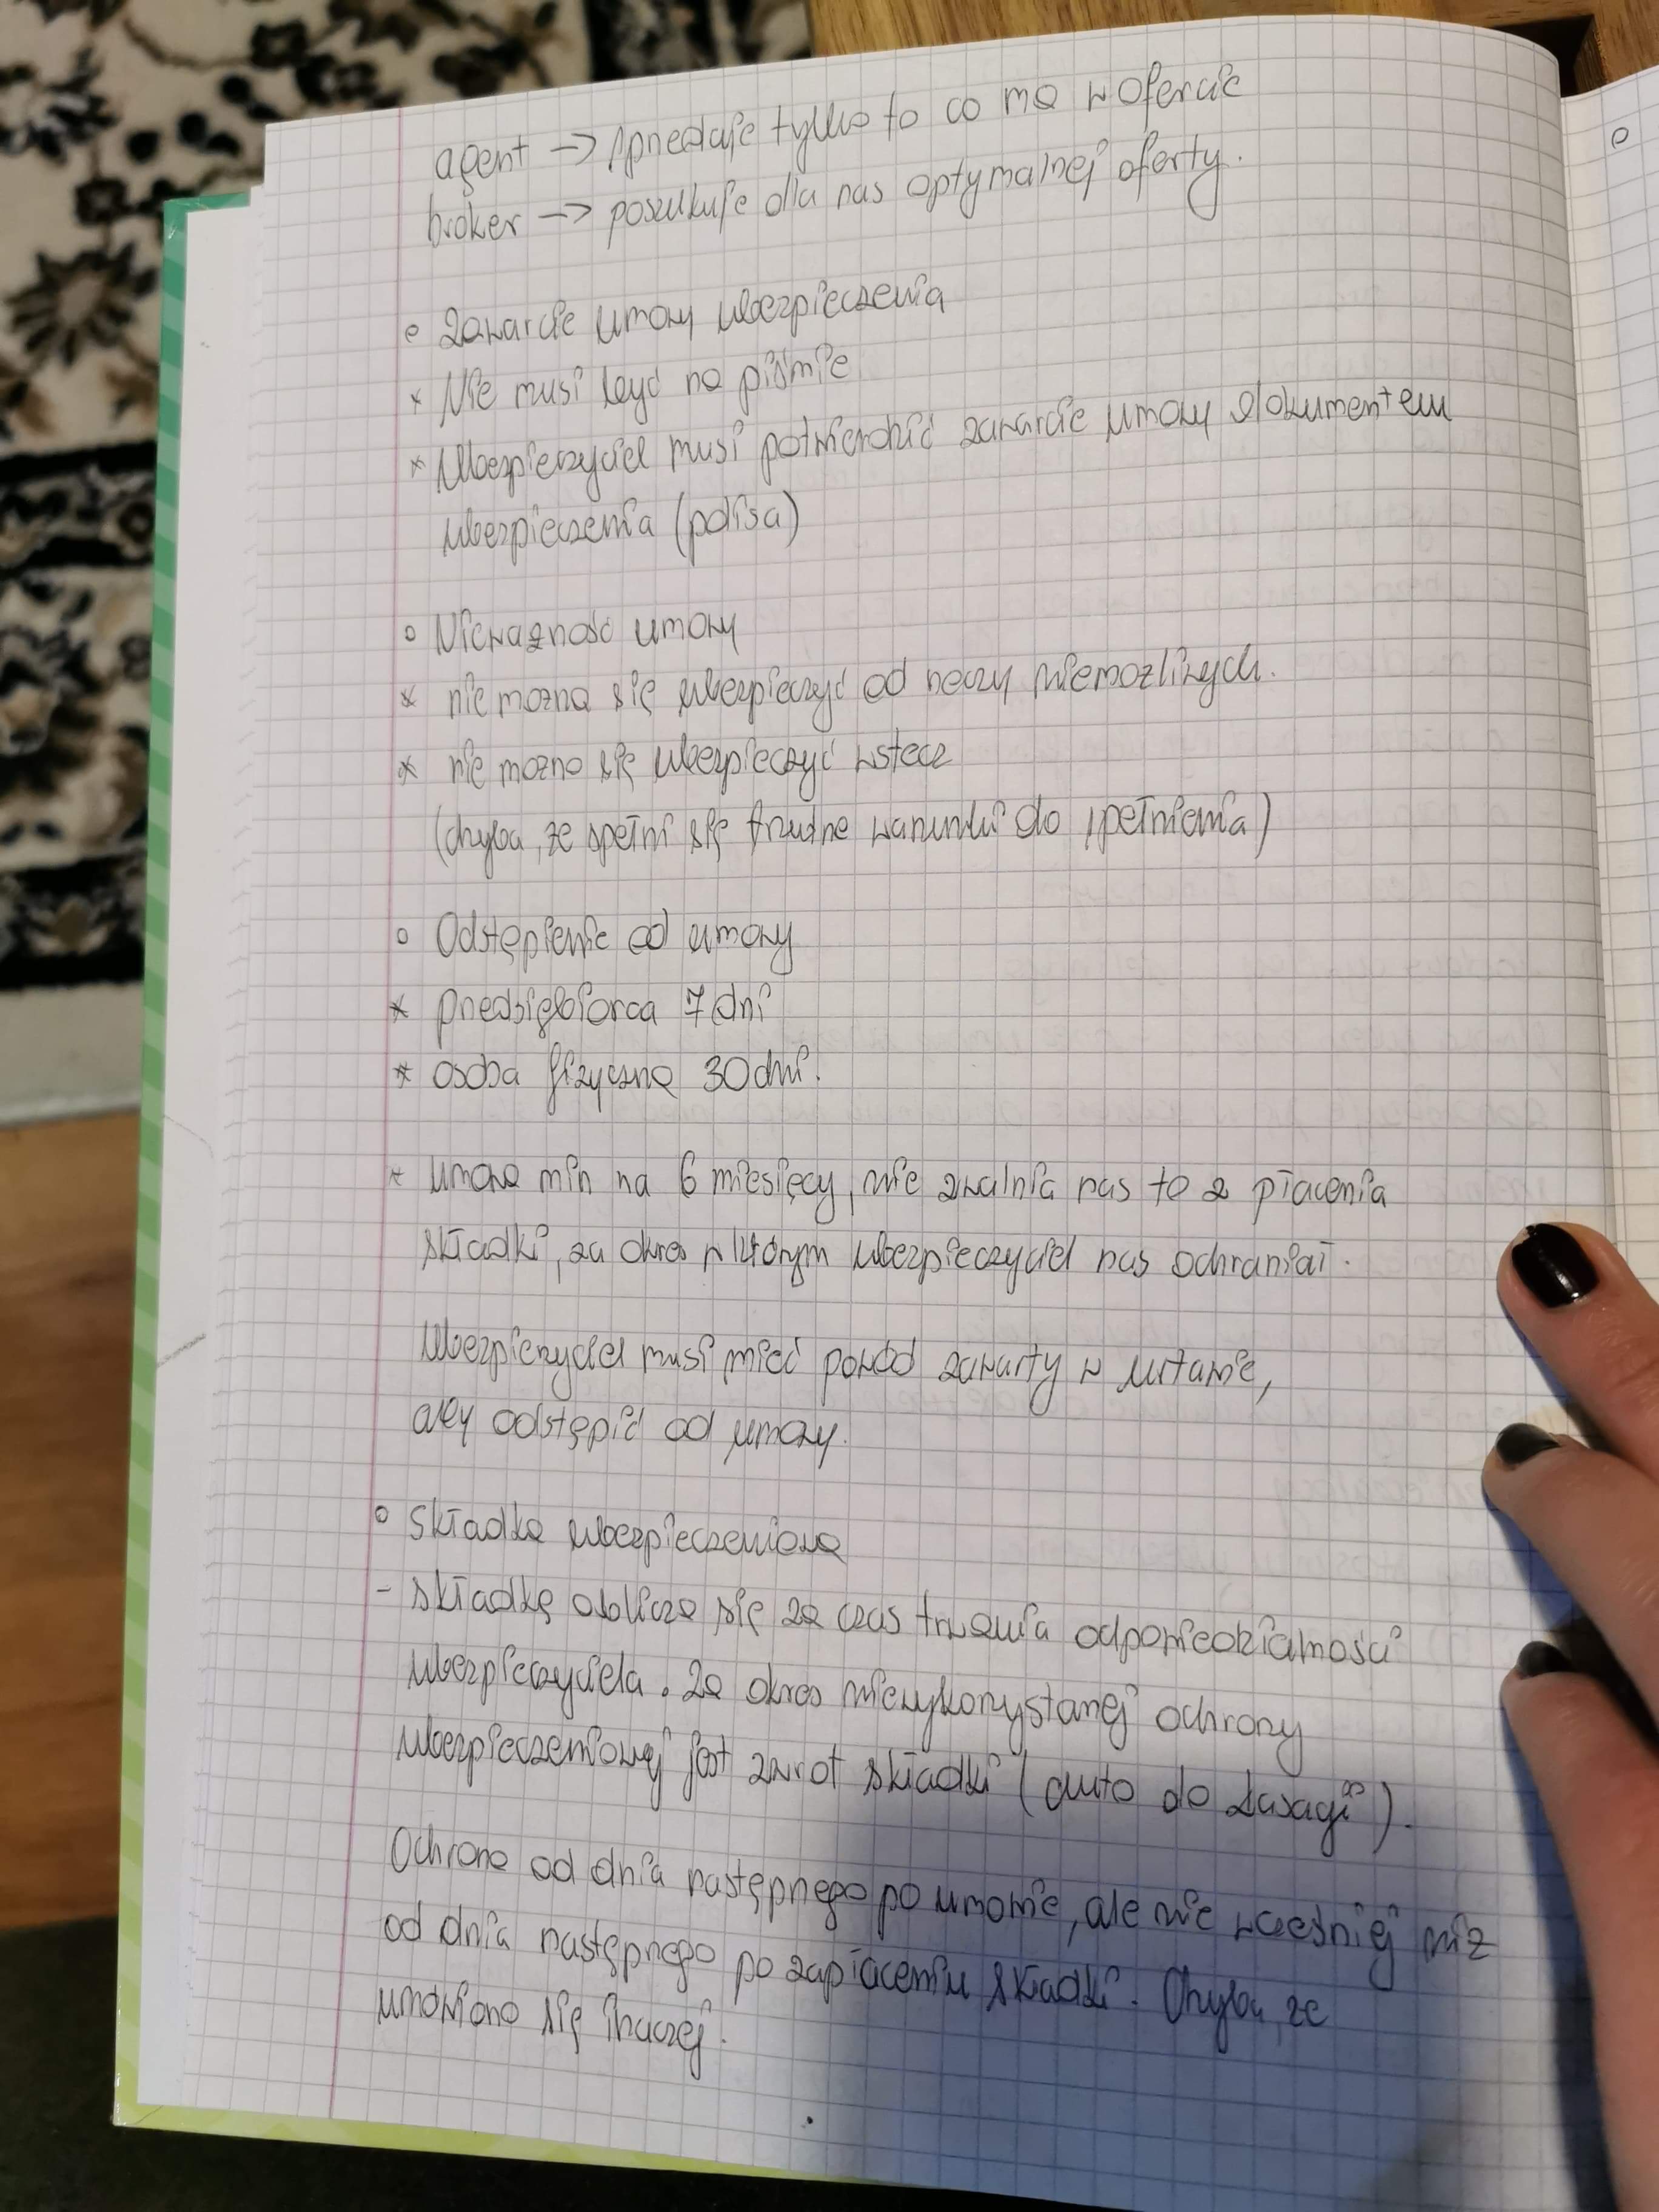 agent -> sprzedaje tylko to co ma w ofercie
broker -> poszukuje dla nas optymalnej oferty.
• Zawarcie umowy ubezpieczenia
* Nie musi być na piśmie
* Ubezpieczyciel musi potwierdzić zawarcie umowy dokumentem
ubezpieczenia (polisa)
◦ Nieważność umowy
* nie można się ubezpieczyć od rzeczy niemożliwych.
* nie można się ubezpieczyć wstecz
(chyba, że spełni się trudne warunki do spełnienia)
◦ Odstąpienie od umowy
* przedsiębiorca 7 dni
* osoba fizyczna 30 dni.
* umowa min na 6 miesięcy, nie zwalnia nas to z płacenia
składki, za okres w którym ubezpieczyciel nas ochraniał.
Ubezpieczyciel musi mieć powód zawarty w ustawie,
aby odstąpić od umowy.
◦ Składka ubezpieczeniowa
- składkę oblicza się za czas trwania odpowiedzialności
ubezpieczyciela. Za okres niewykorzystanej ochrony
ubezpieczeniowej jest zwrot składki (auto do kasacji).
Ochrona od dnia następnego po umowie, ale nie wcześniej niż
od dnia następnego po zapłaceniu składki. Chyba, że
umówiono się inaczej.